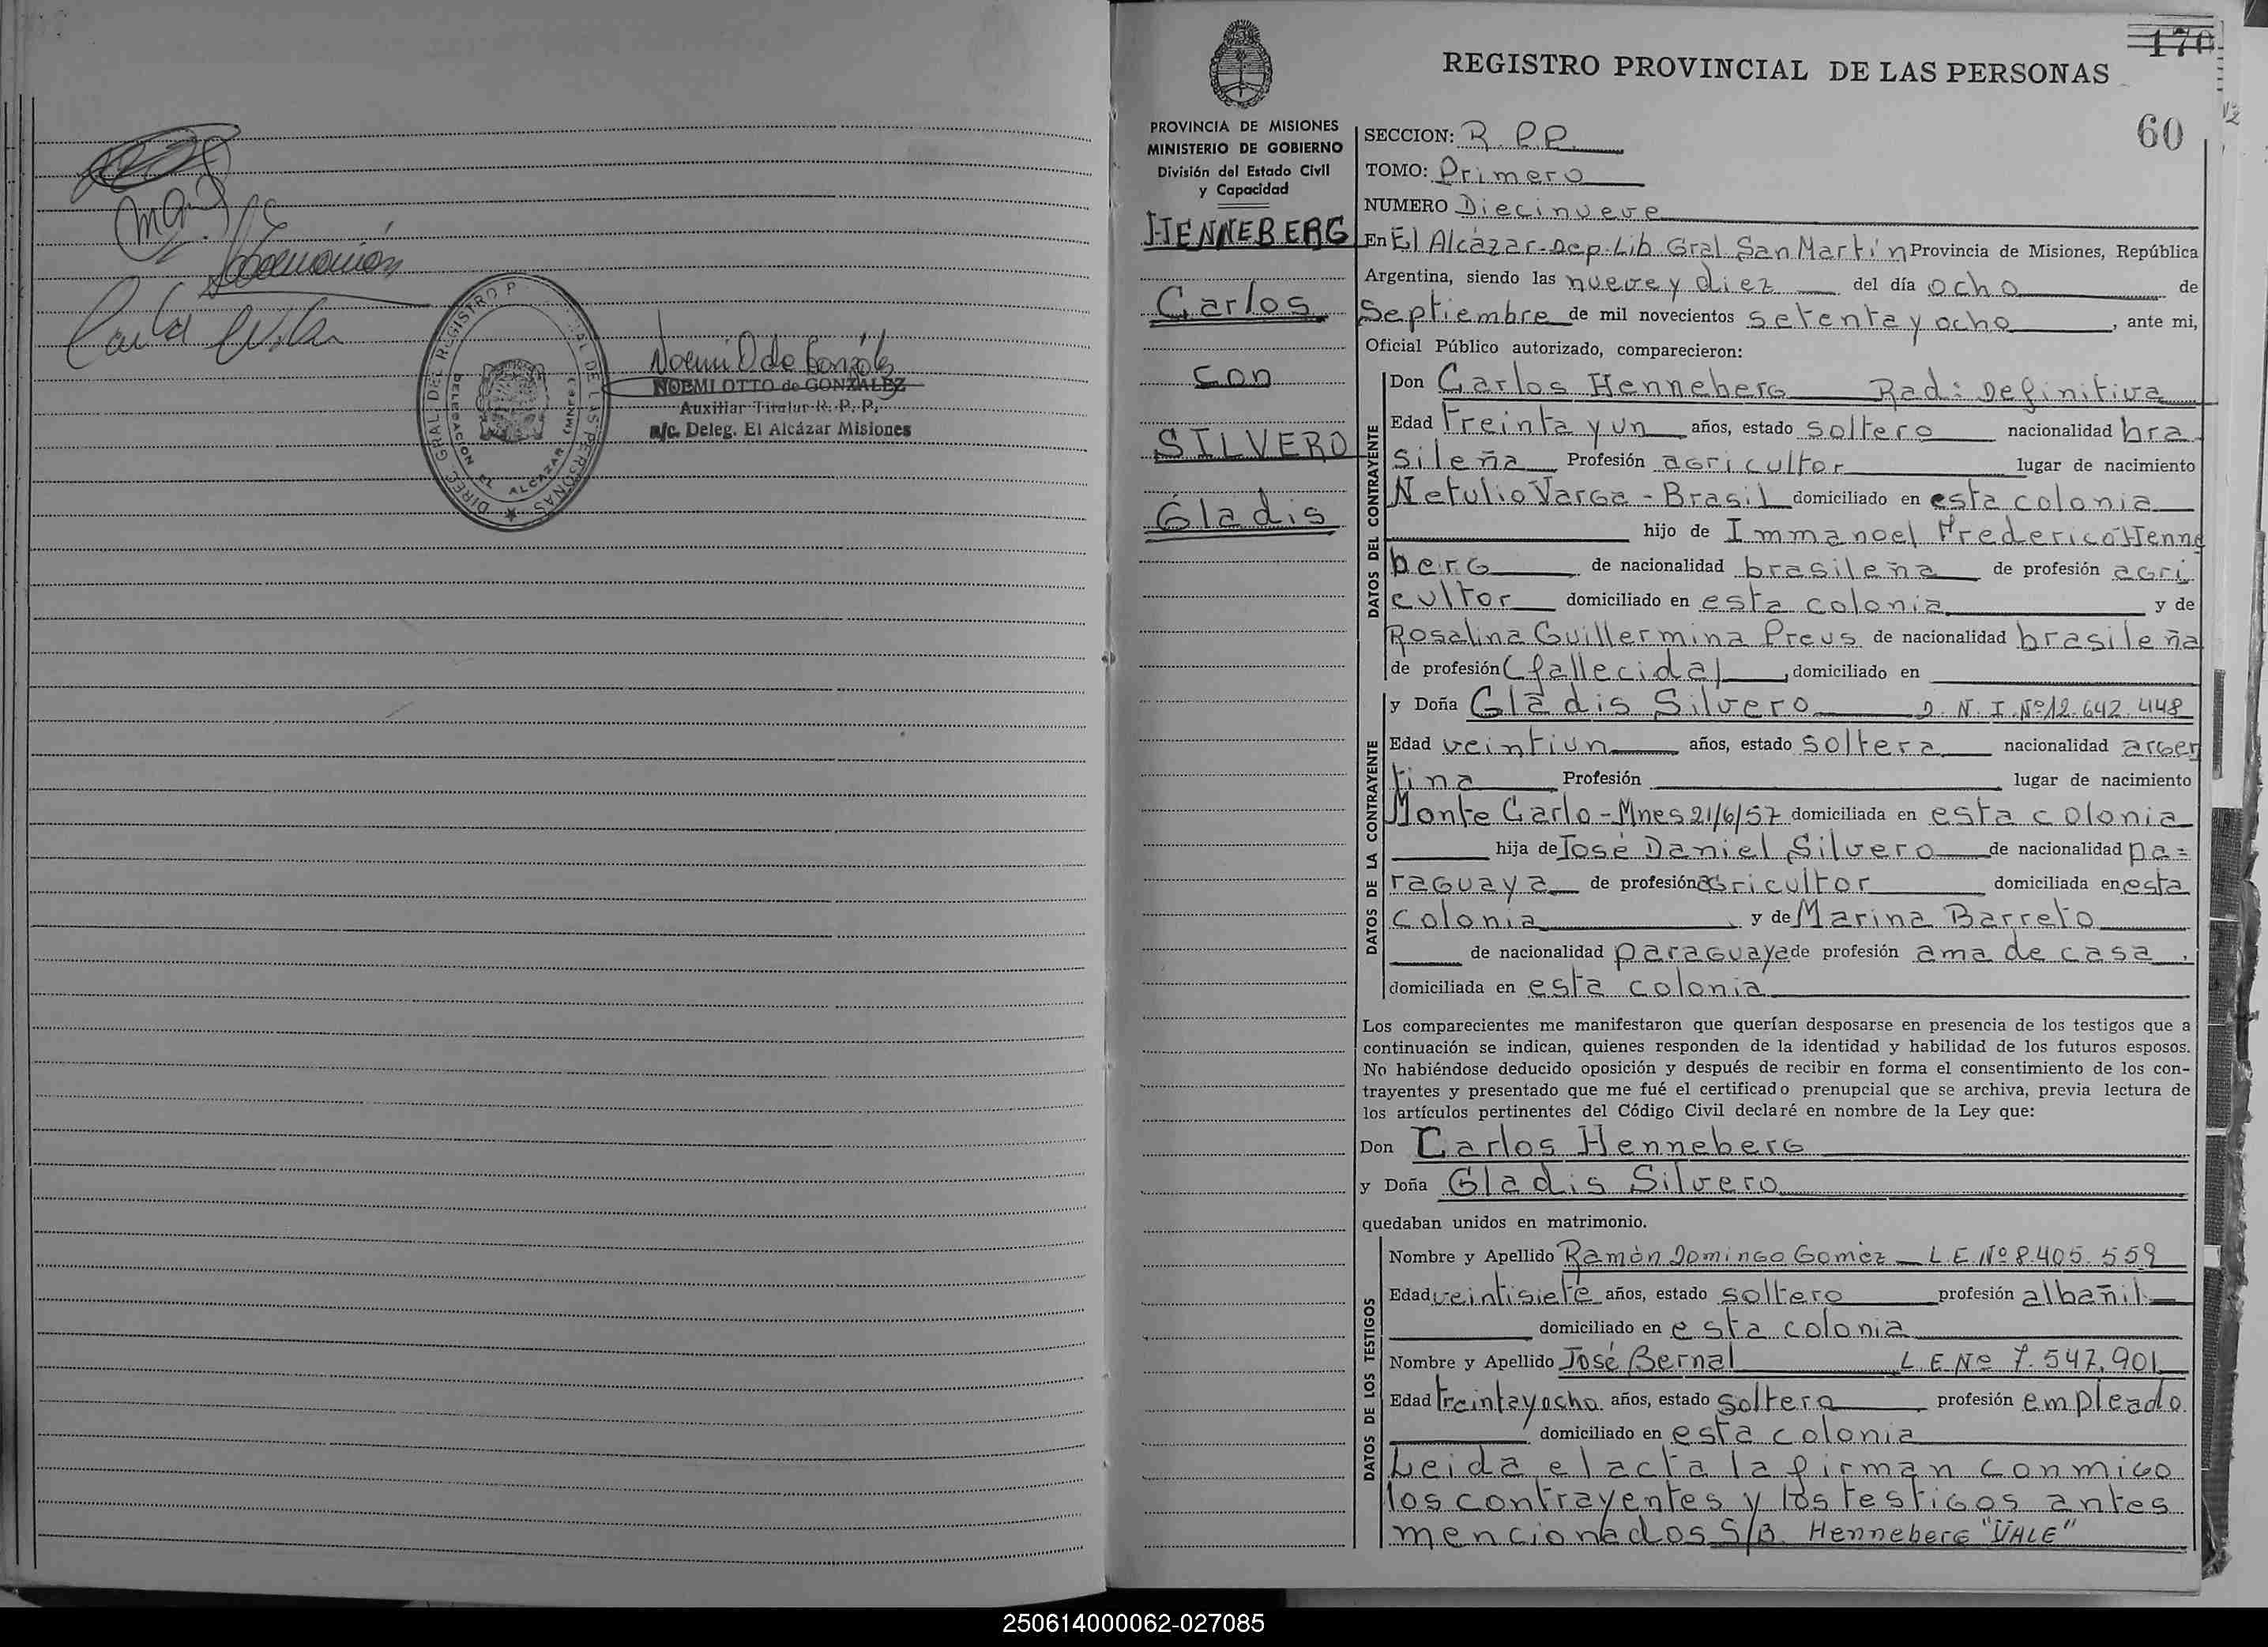 Noemí O de González
NOEMI OTTO de GONZALEZ
Auxiliar Titular R. P. P.
a/c. Deleg. El Alcázar Misiones
DIREC. GRAL. DEL REGISTRO P AL DE LAS PERSONAS
DELEGACION EL ALCAZAR (MNES)
170
REGISTRO PROVINCIAL DE LAS PERSONAS
60
PROVINCIA DE MISIONES
MINISTERIO DE GOBIERNO
División del Estado Civil
y Capacidad
HENNEBERG
Carlos
con
SILVERO
Gladis
SECCION: R.P.P.
TOMO: Primero
NUMERO Diecinueve
En El Alcázar-Dep. Lib. Gral San Martín Provincia de Misiones, República
Argentina, siendo las nueve y diez del día ocho de
Septiembre de mil novecientos setenta y ocho, ante mi,
Oficial Público autorizado, comparecieron:
DATOS DEL CONTRAYENTE
Don Carlos Henneberg Rad: Definitiva
Edad Treinta y un años, estado soltero nacionalidad bra
sileña Profesión agricultor lugar de nacimiento
Netulio Varga - Brasil domiciliado en esta colonia
hijo de Immanoel Frederico Henne
berg de nacionalidad brasileña de profesión agri
cultor domiciliado en esta colonia y de
Rosalina Guillermina Preus de nacionalidad brasileña
de profesión (fallecida), domiciliado en
DATOS DE LA CONTRAYENTE
y Doña Gladis Silvero D.N.I.Nº12.642.448
Edad veintiun años, estado soltera nacionalidad argen
tina Profesión lugar de nacimiento
Monte Carlo-Mnes 21/6/57 domiciliada en esta colonia
hija de José Daniel Silvero de nacionalidad pa=
raguaya de profesión agricultor domiciliada en esta
colonia y de Marina Barreto
de nacionalidad paraguaya de profesión ama de casa,
domiciliada en esta colonia
Los comparecientes me manifestaron que querían desposarse en presencia de los testigos que a
continuación se indican, quienes responden de la identidad y habilidad de los futuros esposos.
No habiéndose deducido oposición y después de recibir en forma el consentimiento de los con-
trayentes y presentado que me fué el certificado prenupcial que se archiva, previa lectura de
los artículos pertinentes del Código Civil declaré en nombre de la Ley que:
Don Carlos Henneberg
y Doña Gladis Silvero
quedaban unidos en matrimonio.
DATOS DE LOS TESTIGOS
Nombre y Apellido Ramón Domingo Gomèz L.E.Nº 8.405.559
Edad veintisiete años, estado soltero profesión albañil
domiciliado en esta colonia
Nombre y Apellido José Bernal L.E Nº 7.547.901
Edad treinta y ocho años, estado soltero profesión empleado
domiciliado en esta colonia
Leida el acta la firman conmigo
los contrayentes y los testigos antes
mencionados S/B Henneberg "VALE"
250614000062-027085